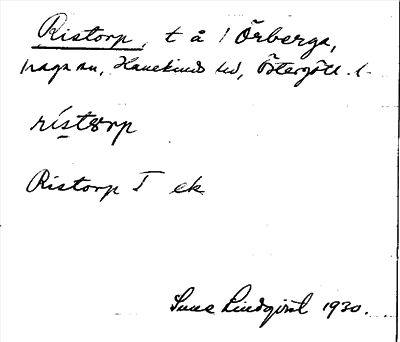 Ristorp, t å 1 Örberga,
sn, Hanekinds hd, Östergötl. l.
rístorp
Ristorp T ek
Sune Lindqvist 1930.